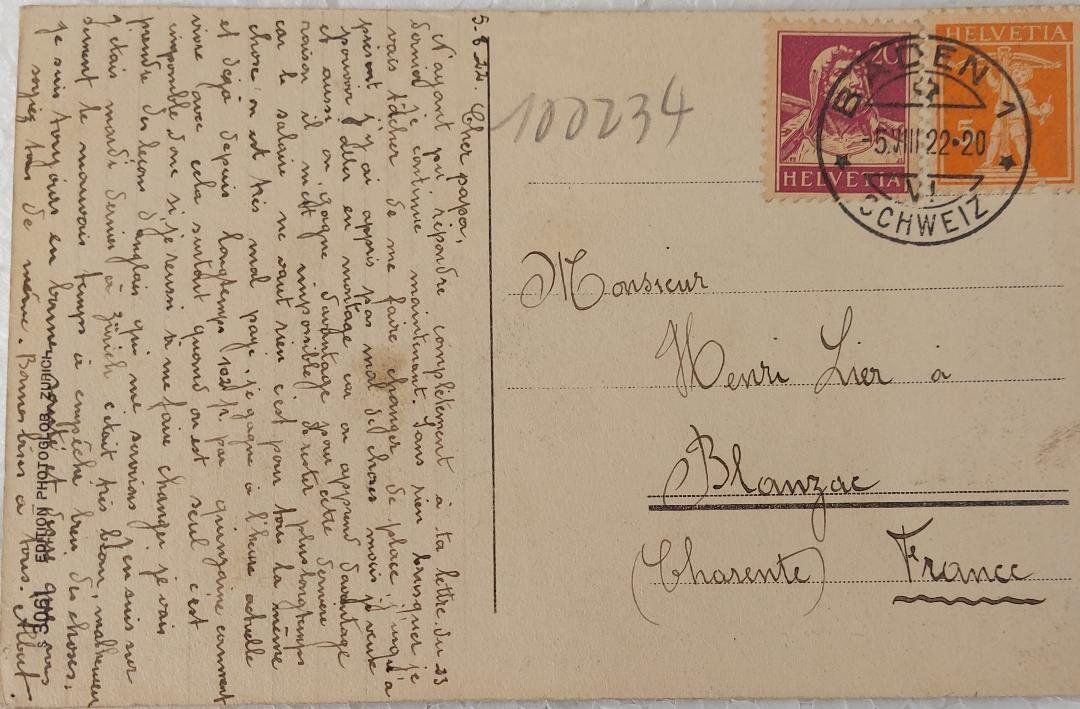 5-8 22. Cher papa,
N'ayant pu répondre complètement à ta lettre du 23
dernier je continue maintenant. Sans rien brusquer je
vais tâcher de me faire changer de place jusqu'à
présent j'y ai appris pas mal de choses mais je veux
pouvoir aller en montage car on apprend davantage
et aussi on gagne davantage pour cette dernière
raison il m'est impossible de rester plus longtemps
car le salaire ne vaut rien c'est pour tous la même
chose on est très mal payé. je gagne à l'heure actuelle
et déjà depuis longtemps 102 fr par quinzaine comment
vivre avec cela surtout quand on est seul c'est
impossible donc si je reussi à me faire changer je vais
prendre des leçon d'anglais qui me serviront j'en suis sur
j'étais mardi dernier à Zürich c'était très beau, malheureu
sement le mauvais temps a empêché bien des choses.
je suis toujours en bonne santé et désire que vous
soyez tous de même. Bonnes bises à tous. Albert.
S 3061 EDITION PHOTOGLOB ZURICH
100234
HELVETIA
20
HELVETIA
5
BADEN 1
-5.VIII.22-20
VI
SCHWEIZ
Monsieur
Henri Lier à
Blanzac
(Charente) France